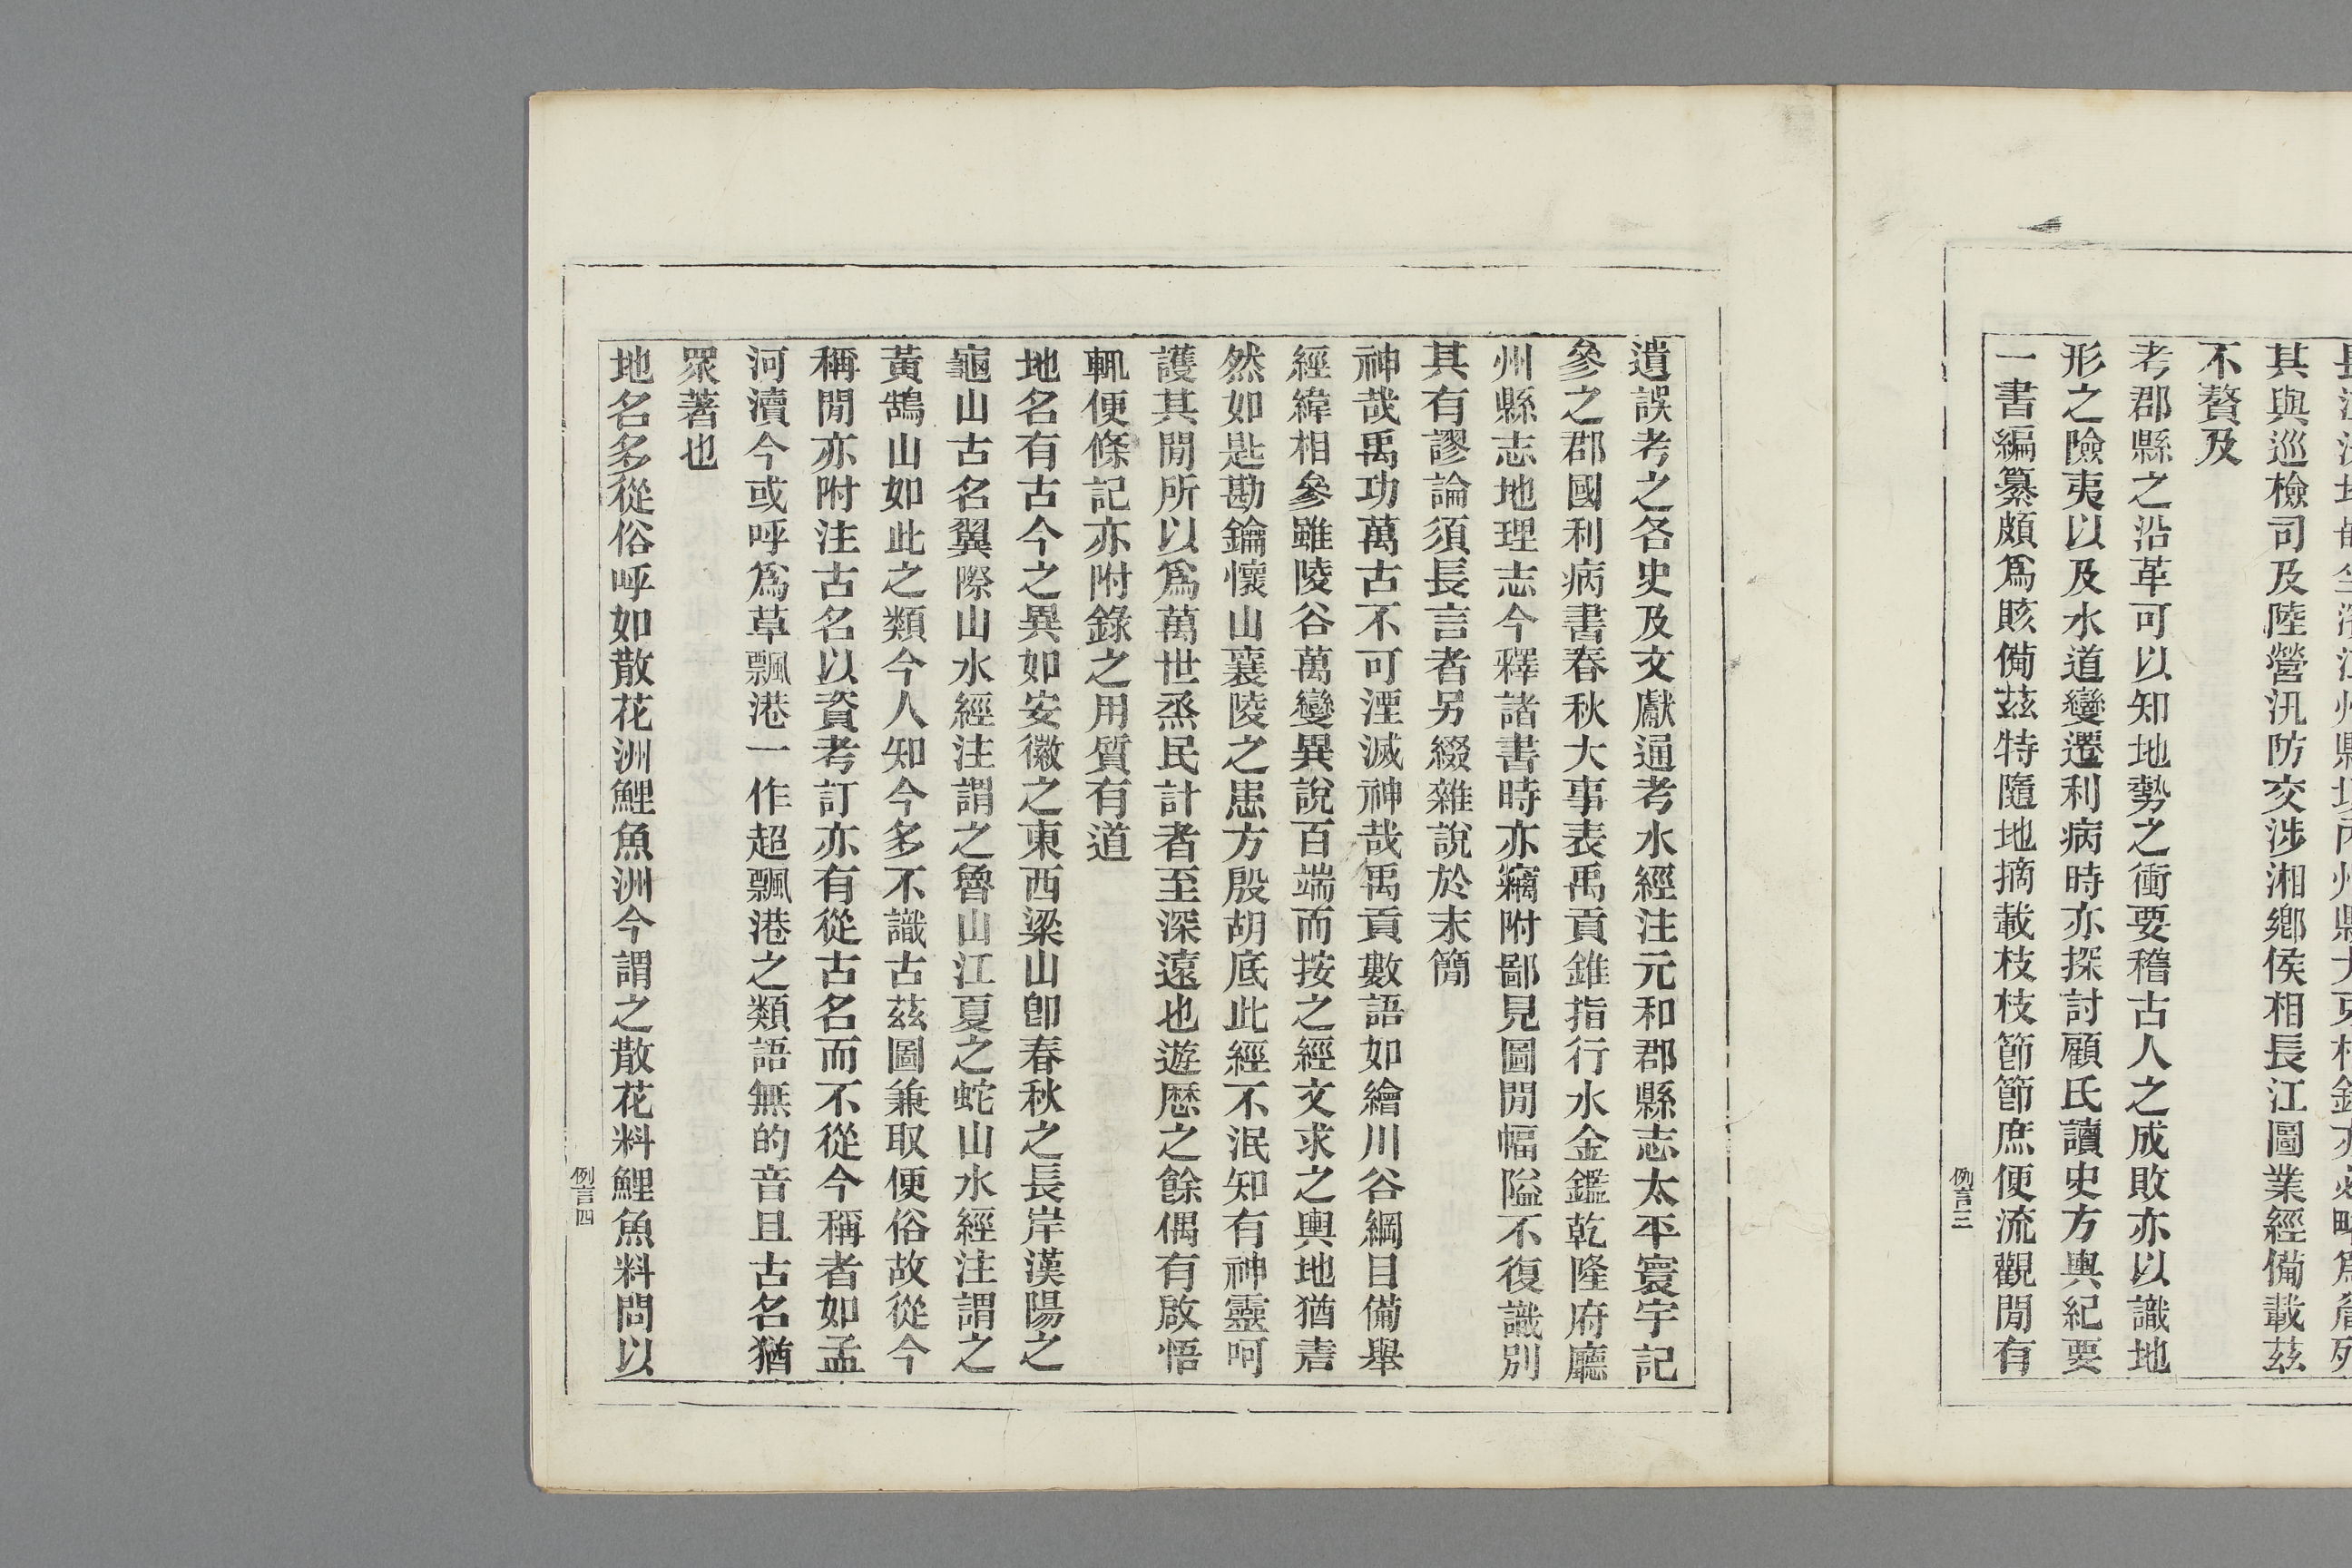 其與巡檢司及陸營汛防交涉湘鄉侯相長江圖業經備載茲
不贅及
考郡縣之沿革可以知地勢之衝要稽古人之成敗亦以識地
形之險夷以及水道變遷利病時亦探討顧氏讀史方輿紀要
一書編纂頗爲賅備茲特隨地摘載枝枝節節庶便流觀閒有
例言三
遺誤考之各史及文獻通考水經注元和郡縣志太平寰宇記
參之郡國利病書春秋大事表禹貢錐指行水金鑑乾隆府廳
州縣志地理志今釋諸書時亦竊附鄙見圖閒幅隘不復識別
其有謬論須長言者另綴雜說於末簡
神哉禹功萬古不可湮滅神哉禹貢數語如繪川谷綱目備舉
經緯相參雖陵谷萬變異說百端而按之經文求之輿地猶砉
然如匙勘鑰懷山襄陵之患方殷胡底此經不泯知有神靈呵
護其閒所以爲萬世烝民計者至深遠也遊歷之餘偶有啟悟
輒便條記亦附錄之用質有道
地名有古今之異如安徽之東西梁山卽春秋之長岸漢陽之
龜山古名翼際山水經注謂之魯山江夏之蛇山水經注謂之
黃鵠山如此之類今人知今多不識古茲圖兼取便俗故從今
稱閒亦附注古名以資考訂亦有從古名而不從今稱者如孟
河瀆今或呼爲草飄港一作超飄港之類語無的音且古名猶
眾著也
地名多從俗呼如散花洲鯉魚洲今謂之散花料鯉魚料問以
例言四